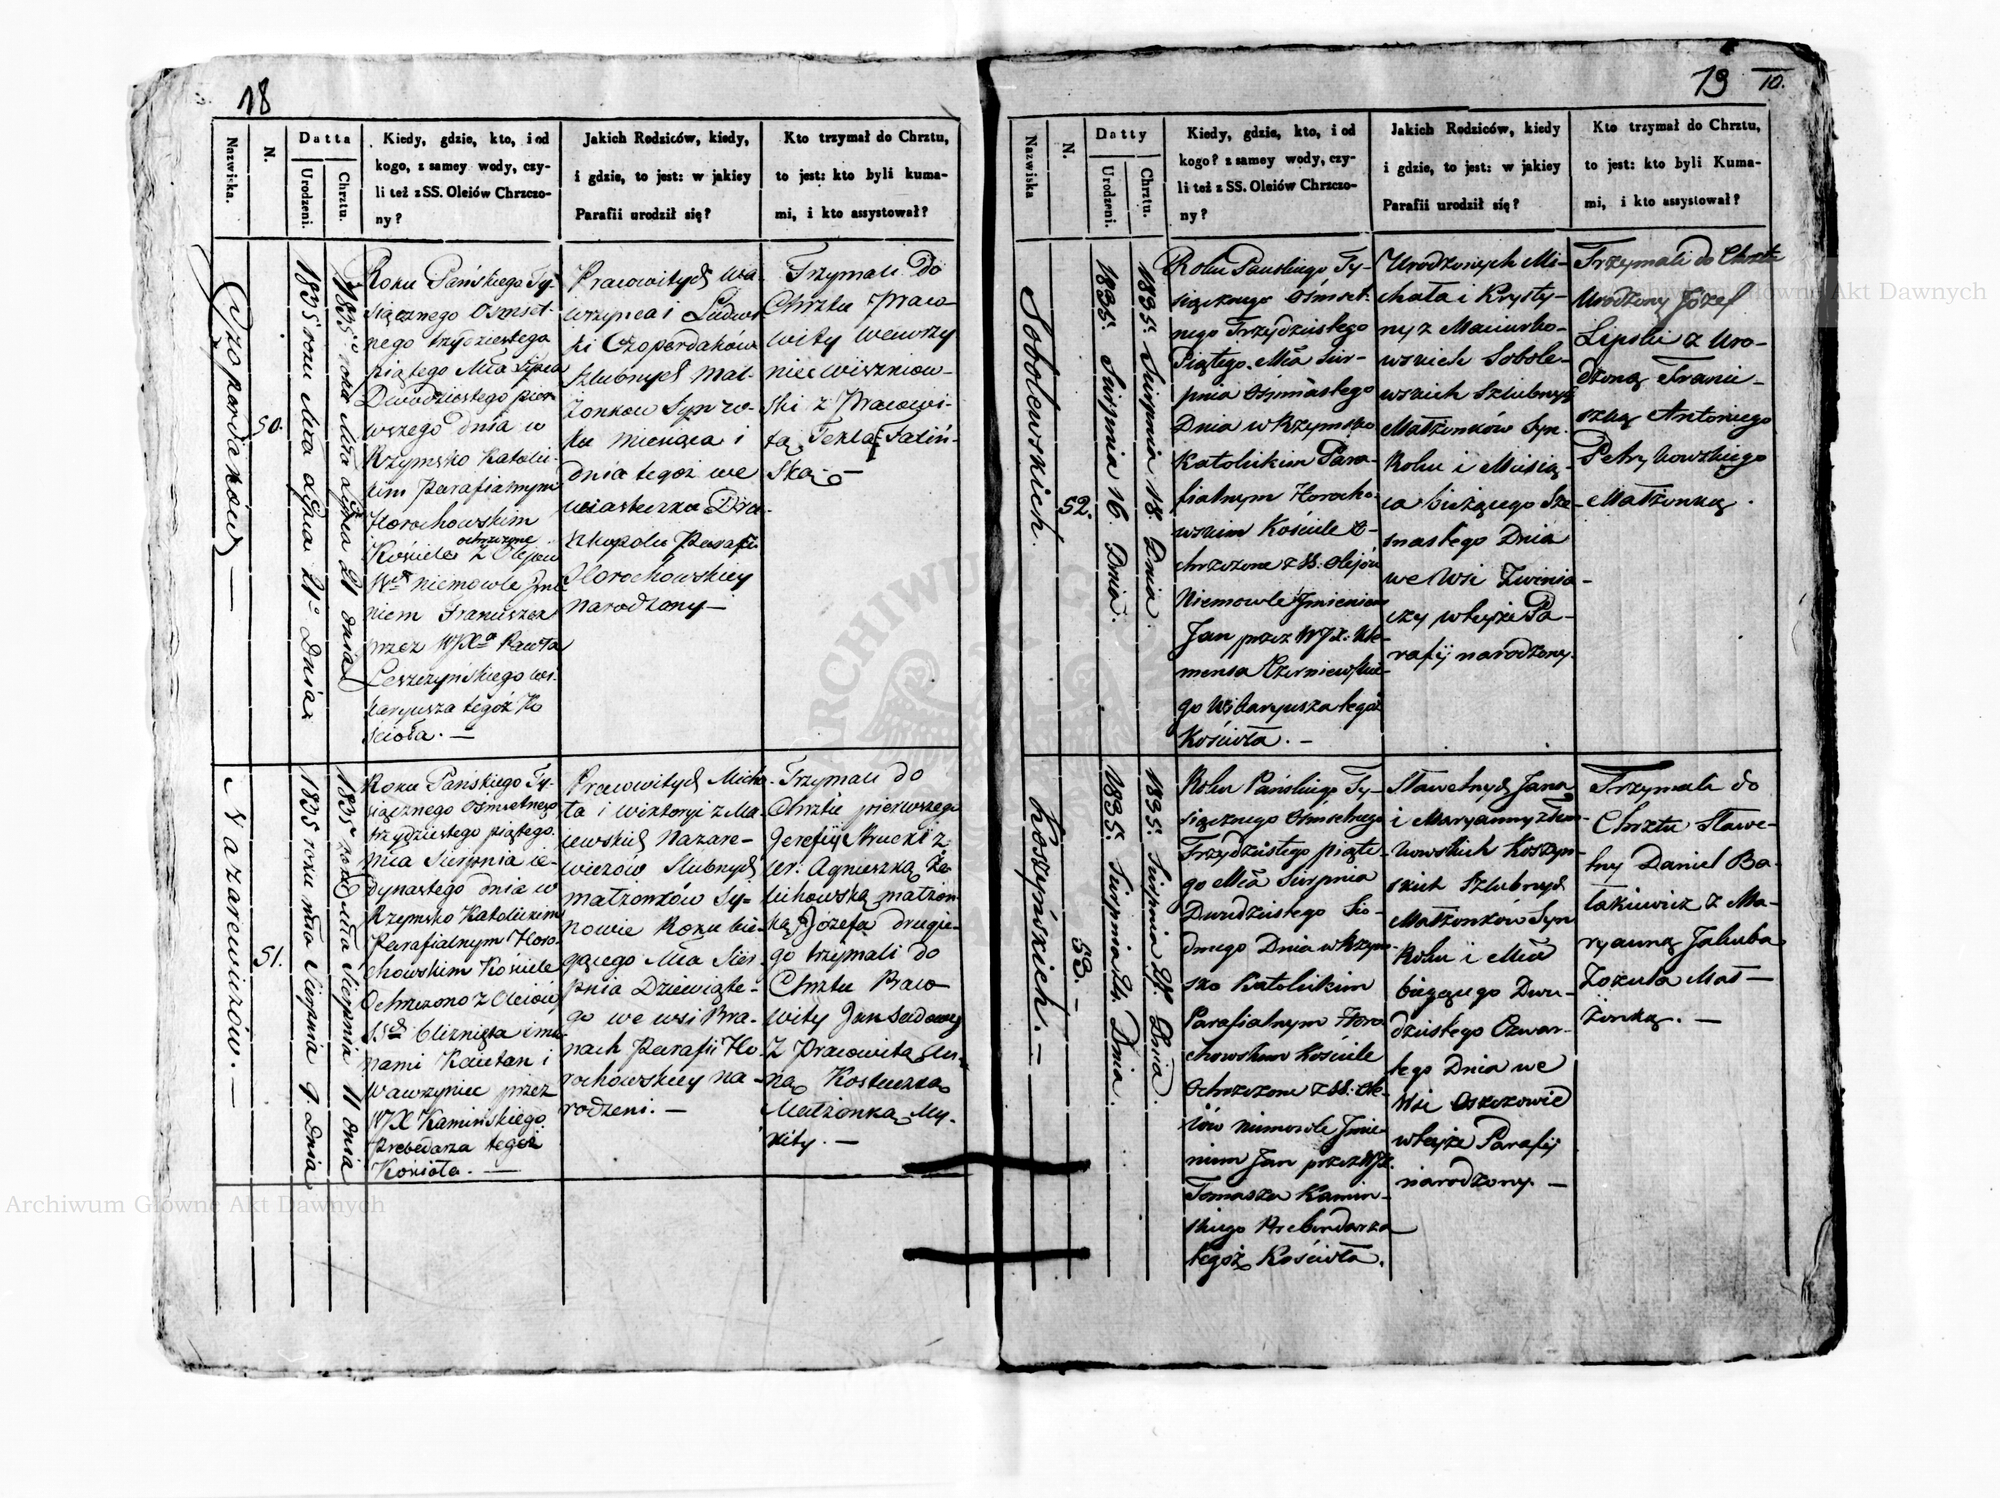 18
Nazwiska.
N.
Datta
Urodzeni.
Chrztu.
Kiedy, gdzie, kto, i od
kogo, z samey wody, czy-
li też z SS. Oleiów Chrzczo-
ny?
Jakich Rodziców, kiedy,
i gdzie, to jest: w jakiey
Parafii urodził się?
Kto trzymał do Chrztu,
to jest: kto byli kuma-
mi, i kto assystował?
Czoperdaków —
50.
1835 roku Mca Lipca 21o Dnia
1835 roku Mca Lipca 21 dnia
Roku Pańskiego Ty-
siącznego Osmset-
nego trzydziestego
piątego Mca Lipca
Dwudziestego pier-
wszego dnia w
Rzymsko Katolic-
kim Parafialnym
Horochowskim
Kościele ochrzczone z Olejów
niemowle Imie-
niem Franciszek
przez WJXa Pawła
Leszczyńskiego wi-
karyusza tegoż Ko
ścioła. —
Pracowitych Wa-
wrzyńca i Ludwi-
ki Czoperdaków
szlubnych Mał-
żonkow Syn ro-
ku miesiąca i
dnia tegoż we
miasteczku Dru-
żkopolu Parafii
Horochowskiey
narodzony —
Trzymali Do
Chrztu Praco-
wity Wawrzy
niec Wiszniow-
ski z Pracowi-
tą Teklą Faliń-
ską —
Nazarewiczów. —
51.
1835 roku Mca Sierpnia 9. Dnia
1835 roku Mca Sierpnia 11 dnia
Roku Pańskiego Ty-
siącznego Osmsetnego
trzydziestego piątego
Mca Sierpnia je-
dynastego dnia w
Rzymsko Katolickim
Parafialnym Horo-
chowskim Kościele
Ochrzczono z Oleiów
SSch bliznięta imio-
nami Kaietan i
Wawrzyniec przez
WJX Kamińskiego
Prebędarza tegoż
Kościoła. —
Pracowitych Micha-
ła i Wiktoryi z Ma-
iewskich Nazare-
wiczów Slubnych
małżonków Sy-
nowie Roku bie-
gącego Mca Sier-
pnia Dziewiąte-
go we wsi Bra-
nach Parafii Ho-
rochowskiey na-
rodzeni. —
Trzymali do
Chrztu pierwszego
Jerefiy Krucki z
Agnieszką
małżon-
ką Józefa drugie-
go trzymali do
Chrztu Praco-
wity Jan Sadowy
z Pracowitą An-
ną Kostiuczą
Małżonką My-
kity. —
19 10.
Nazwiska
N.
Datty
Urodzeni.
Chrztu.
Kiedy, gdzie, kto, i od
kogo? z samey wody, czy-
li też z SS. Oleiów Chrzczo-
ny?
Jakich Rodziców, kiedy
i gdzie, to jest: w jakiey
Parafii urodził się?
Kto trzymał do Chrztu,
to jest: kto byli Kuma-
mi, i kto assystował?
Sobolewskich.
52.
1835. Sierpnia 16. Dnia.
1835. Sierpnia 18. Dnia.
Roku Pańskiego Ty-
siącznego Ośmset-
nego Trzydziestego
Piątego. Mca Sier-
pnia Osimnastego
Dnia w Rzymsko
Katolickim Para-
fialnym Horocho-
wskim Kościele o-
chrzczone z SS. Olejów
Niemowle Imieniem
Jan przez WJX. Kle-
mensa Czerniewskie-
go Wikaryusza tegoż
Kościoła. —
Urodzonych Mi-
chała i Krysty-
ny z Maciesko-
wskich Sobole-
wskich Szlubnych
Małżonków Syn.
Roku i Miesią-
ca bieżącego Sze-
snastego Dnia
we Wsi Zwinia-
czy w teyże Pa-
rafij narodzony.
Trzymali do Chrztu
Urodzony Józef
Lipski z Uro-
dzoną Franci-
szką Antoniego
Petrykowskiego
Małżonką.
Koszyńskich. —
53. —
1835. Sierpnia 24. Dnia.
1835. Sierpnia 27. Dnia.
Roku Pańskiego Ty-
siącznego Ośmsetnego
Trzydziestego piąte-
go Mca Sierpnia
Dwudziestego Sio-
dmego Dnia w Rzym-
sko Katolickim
Parafialnym Horo
chowskim Kościele
Ochrzczone z SS. Ole-
iów niemowle Imie-
niem Jan przez WJX.
Tomasza Kamin-
skiego Prebendarza
tegoż Kościoła.
Sławetnych Jana
i Maryanny z
kowskich Koszyń-
skich Szlubnych
Małżonków Syn
Roku i Mca
bieżącego Dwu-
dziestego Czwar-
tego Dnia we
Wsi Oszczowie
w teyże Parafij
narodzony. —
Trzymali do
Chrztu Sławe-
tny Daniel Ba-
łakiewicz z Ma-
ryanną Jakuba
Zozula Mał-
żonką. —
Archiwum Główne Akt Dawnych
Archiwum Główne Akt Dawnych